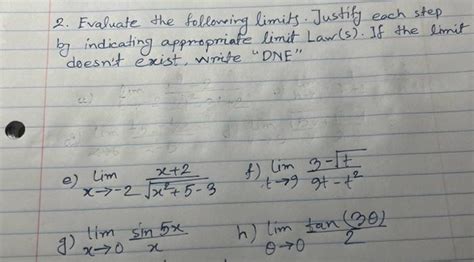 2. Evaluate the following limits. Justify each step
by indicating appropriate limit Law(s). If the limit
doesn't exist, write "DNE"
e) lim x→-2 (x+2)/(√(x²+5) - 3) f) lim t→9 (3-√t)/(9t-t²)
g) lim x→0 (sin 5x)/x h) lim θ→0 (tan(3θ))/2